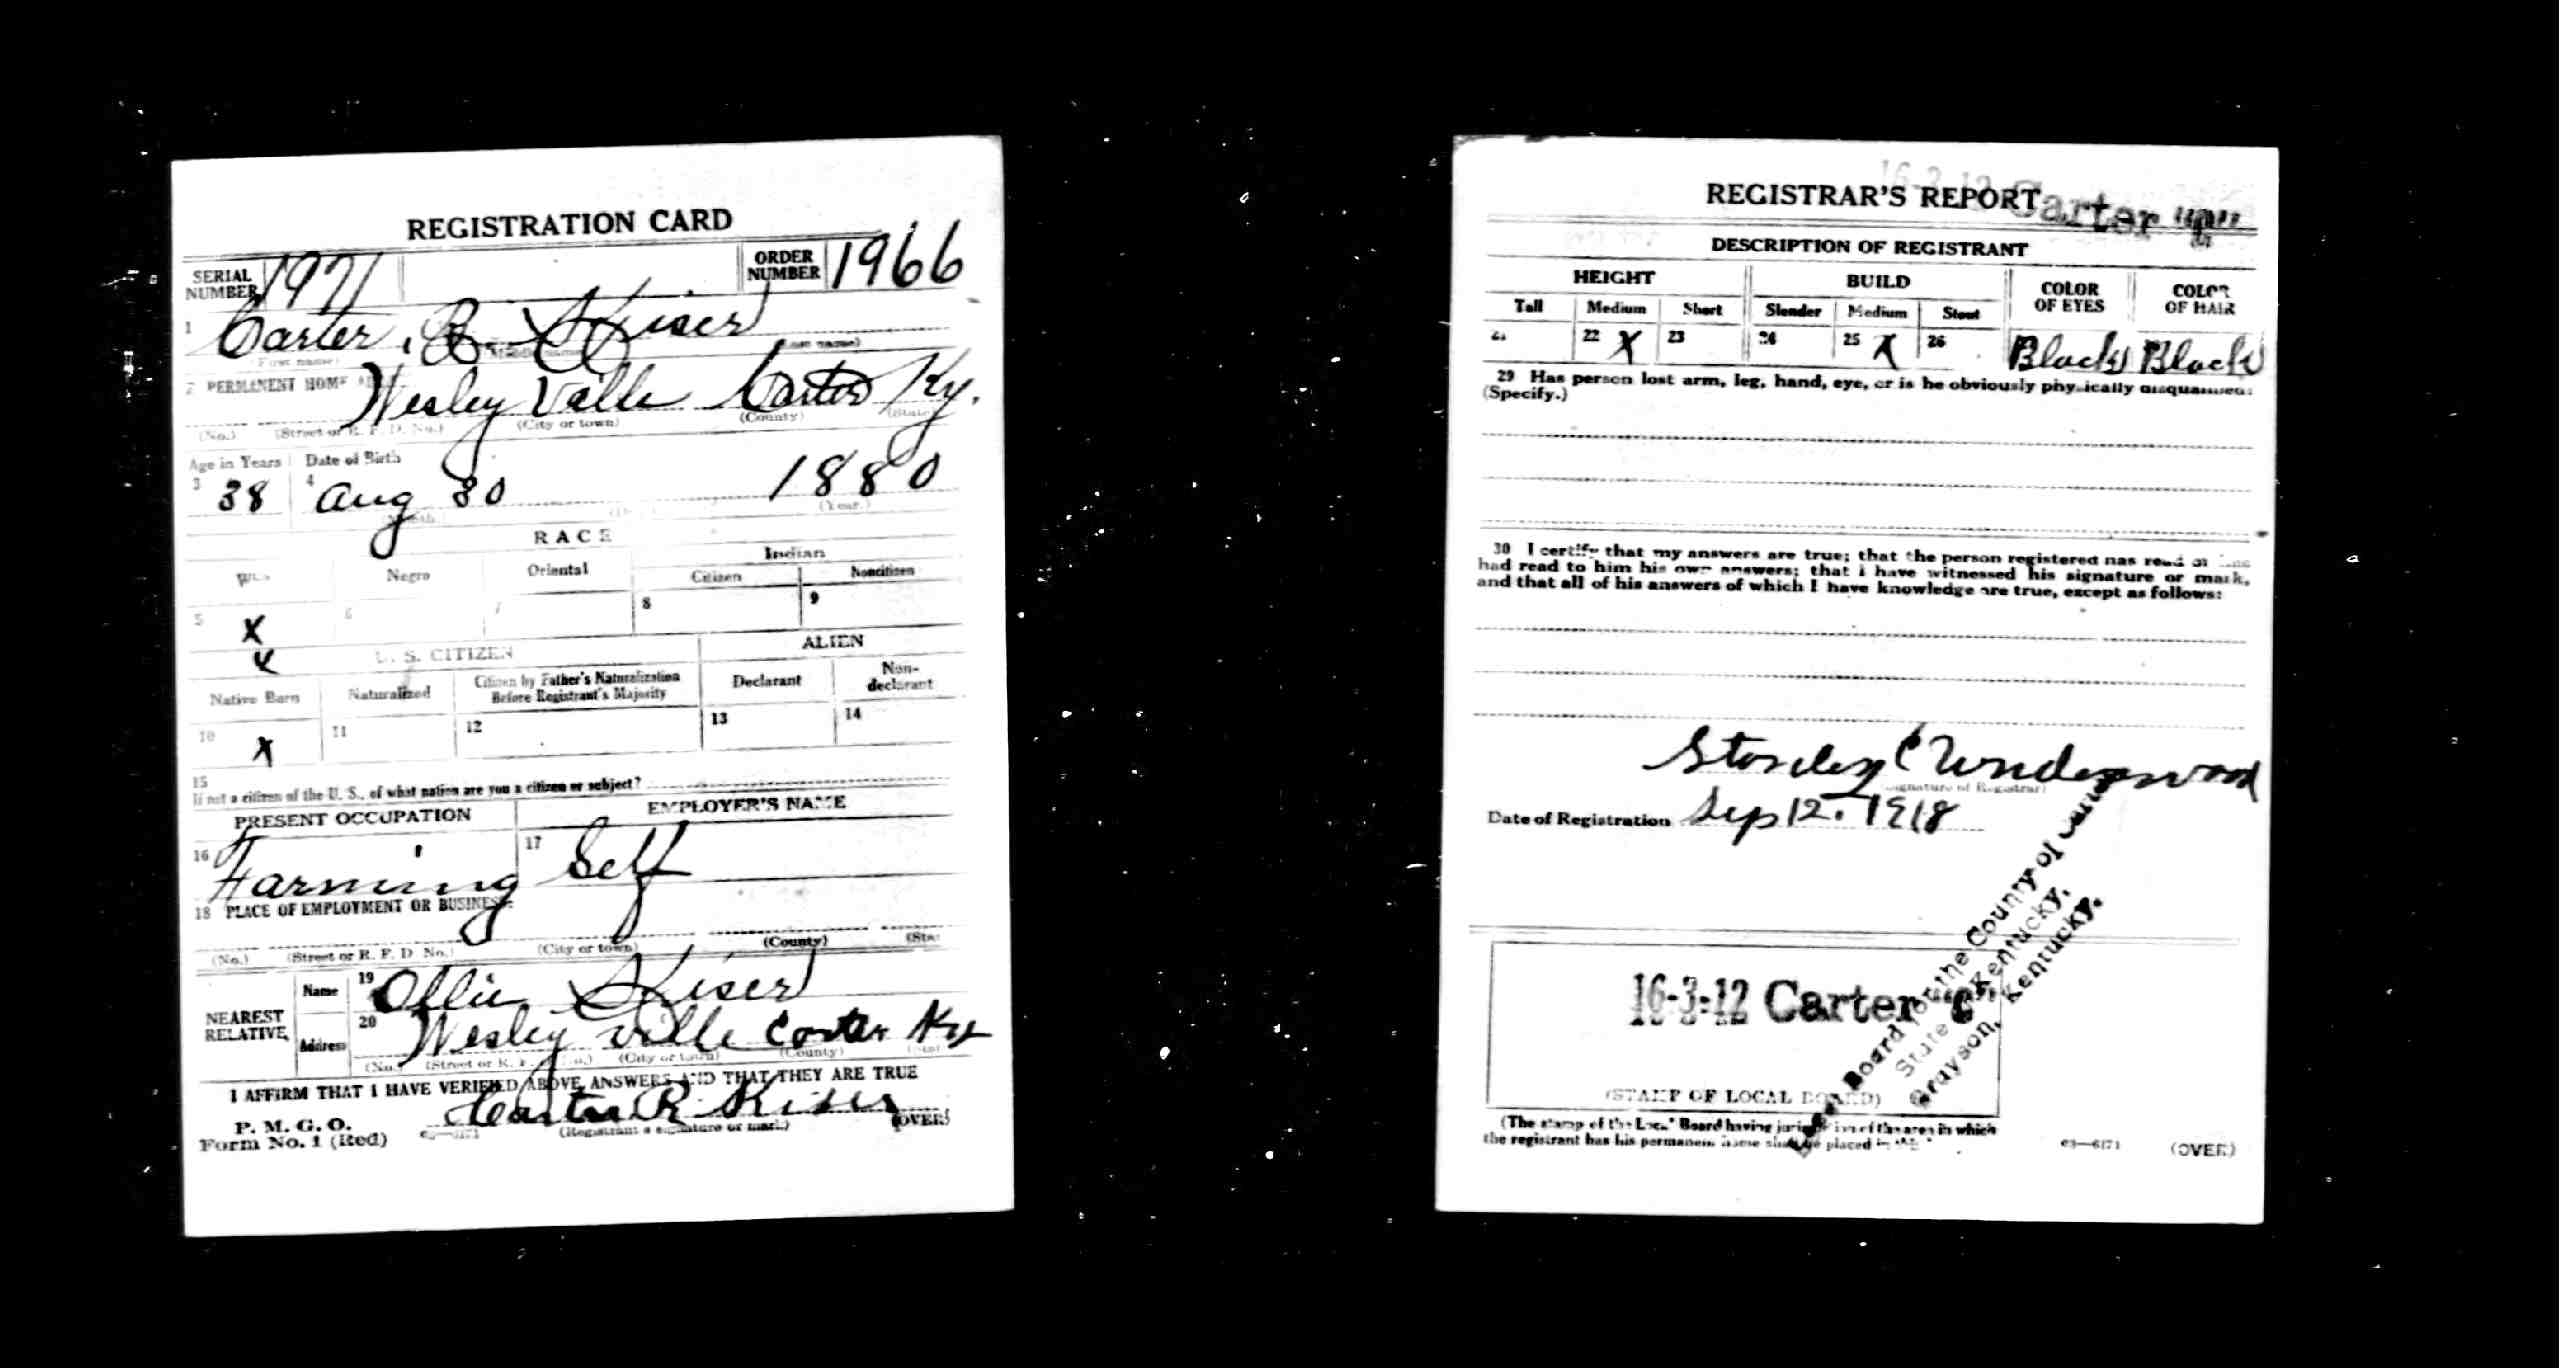 REGISTRATION CARD
SERIAL NUMBER 1971 ORDER NUMBER 1966
1 Carter R. Kiser
(First name) (Middle name) (Last name)
2 PERMANENT HOME Wesley Ville Carter Ky.
(No.) (Street or R. F. D. No.) (City or town) (County) (State)
Age in Years Date of Birth
3 38 4 Aug 30 1880
(Month) (Year.)
RACE
Indian
Negro Oriental Citizen Noncitizen
5 X 6 7 8 9
X U. S. CITIZEN ALIEN
Native Born Naturalized Citizen by Father's Naturalization Before Registrant's Majority Declarant Non-declarant
10 X 11 12 13 14
15
If not a citizen of the U. S., of what nation are you a citizen or subject?
PRESENT OCCUPATION EMPLOYER'S NAME
16 Farming 17 Self
18 PLACE OF EMPLOYMENT OR BUSINESS:
(No.) (Street or R. F. D. No.) (City or town) (County) (State)
NEAREST RELATIVE Name 19 Ollie Kiser
Address 20 Wesley ville Carter Ky
(No.) (Street or R. F. D. No.) (City or town) (County) (State)
I AFFIRM THAT I HAVE VERIFIED ABOVE ANSWERS AND THAT THEY ARE TRUE
P. M. G. O.
Form No. 1 (Red) Carter R Kiser
03—6171 (Registrant's signature or mark) (OVER)
16-3-12 Carter "C"
REGISTRAR'S REPORT
DESCRIPTION OF REGISTRANT
HEIGHT BUILD COLOR OF EYES COLOR OF HAIR
Tall Medium Short Slender Medium Stout
21 22 X 23 24 25 X 26 Black Black
29 Has person lost arm, leg, hand, eye, or is he obviously physically disqualified?
(Specify.)
30 I certify that my answers are true; that the person registered has read or has
had read to him his own answers; that I have witnessed his signature or mark,
and that all of his answers of which I have knowledge are true, except as follows:
Stanley C Underwood
(Signature of Registrar)
Date of Registration Sep 12. 1918
Board for the County of Carter
State of Kentucky,
Grayson, Kentucky.
16-3-12 Carter "C"
(STAMP OF LOCAL BOARD)
(The stamp of the Local Board having jurisdiction of the area in which
the registrant has his permanent home shall be placed in this
03—6171 (OVER)